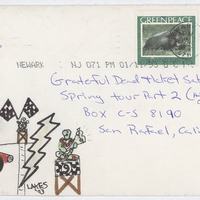 GREENPEACE
NEWARK NJ 071 PM 01/11/93
Grateful Dead Ticket Sal
Spring tour Part 2 (
Box C-S 8190
San Rafael, Cali
LAKES
'93